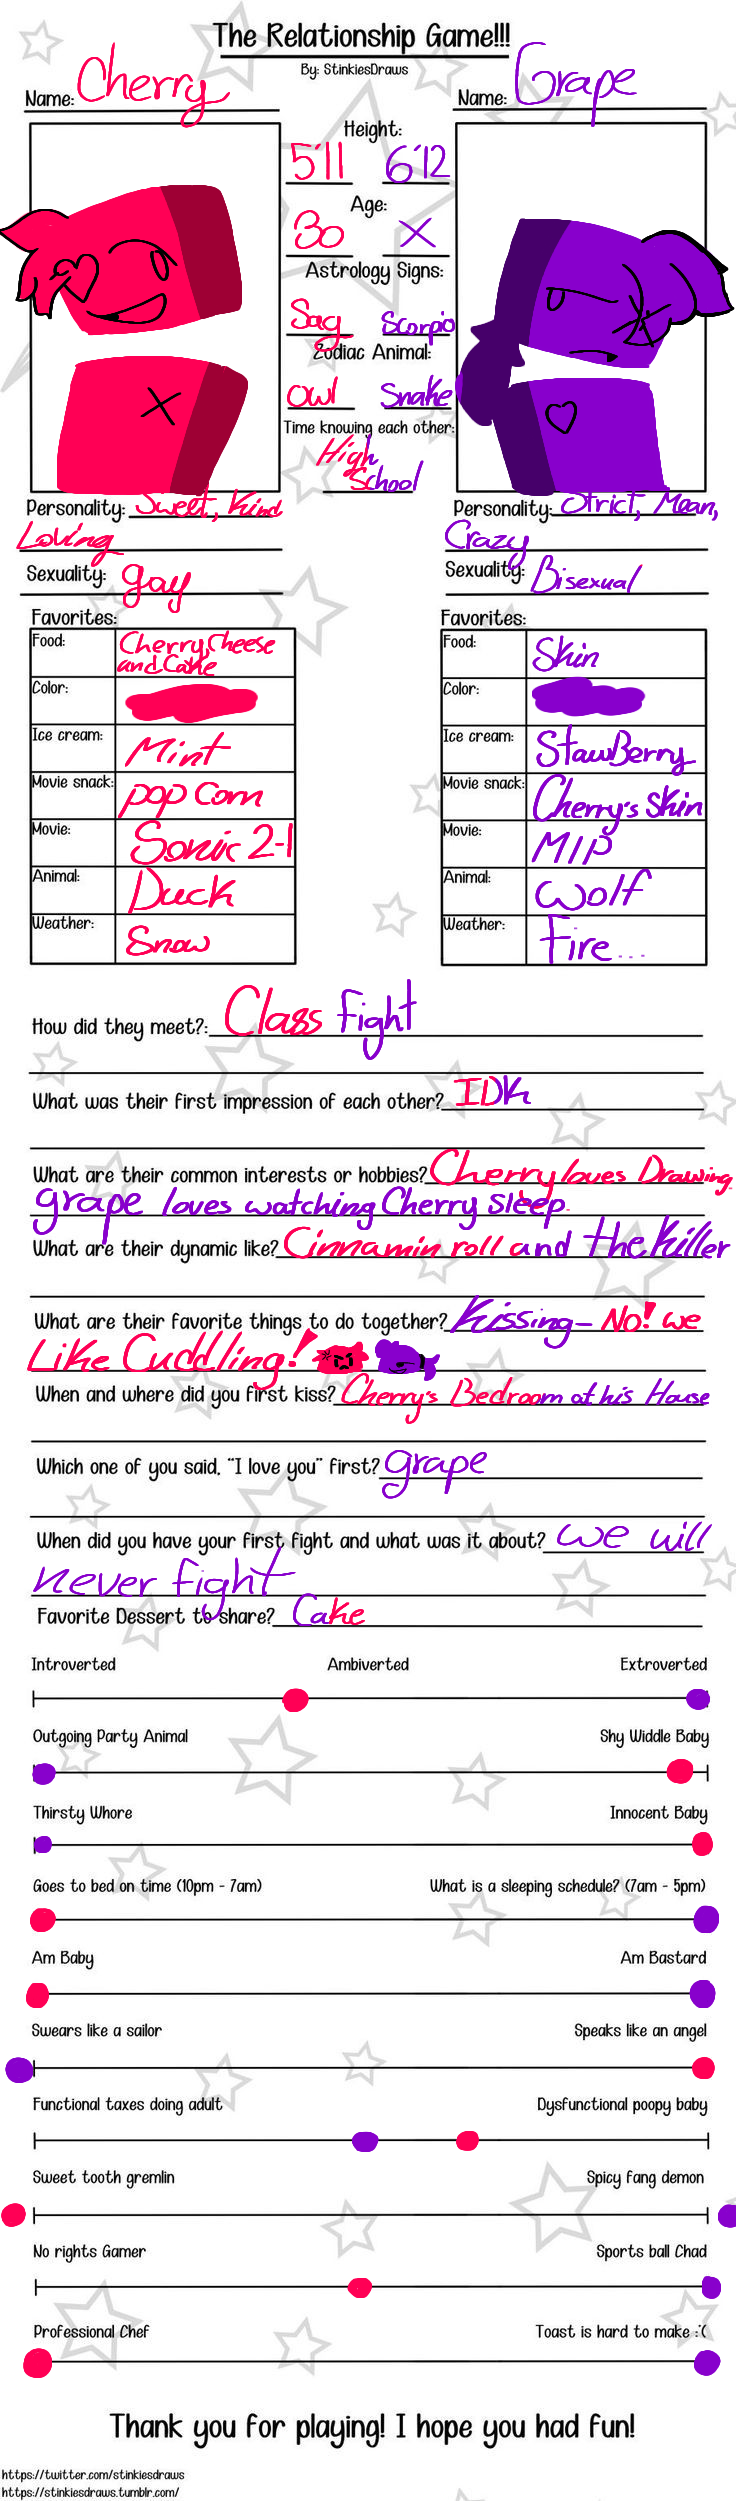 The Relationship Game!!!
By: StinkiesDraws
Name: Cherry
Name: Grape
Height:
5'11 6'12
Age:
30 X
Astrology Signs:
Sag Scorpio
Zodiac Animal:
Owl Snake
Time knowing each other:
High
School
Personality: Sweet, Kind
Loving
Sexuality: gay
Personality: Strict, Mean,
Crazy
Sexuality: Bisexual
Favorites:
Food: Cherry, Cheese
and Cake
Color:
Ice cream: Mint
Movie snack: pop corn
Movie: Sonic 2-1
Animal: Duck
Weather: Snow
Favorites:
Food: Skin
Color:
Ice cream: StawBerry
Movie snack: Cherry's Skin
Movie: MIP
Animal: Wolf
Weather: Fire...
How did they meet?: Class fight
What was their first impression of each other? IDK
What are their common interests or hobbies? Cherry loves Drawing
grape loves watching Cherry sleep.
What are their dynamic like? Cinnamin roll and the killer
What are their favorite things to do together? Kissing- No! we
Like Cuddling!
When and where did you first kiss? Cherry's Bedroom at his House
Which one of you said, "I love you" first? grape
When did you have your first fight and what was it about? we will
never fight
Favorite Dessert to share? Cake
Introverted Ambiverted Extroverted
Outgoing Party Animal Shy Widdle Baby
Thirsty Whore Innocent Baby
Goes to bed on time (10pm - 7am) What is a sleeping schedule? (7am - 5pm)
Am Baby Am Bastard
Swears like a sailor Speaks like an angel
Functional taxes doing adult Dysfunctional poopy baby
Sweet tooth gremlin Spicy fang demon
No rights Gamer Sports ball Chad
Professional Chef Toast is hard to make :'(
Thank you for playing! I hope you had fun!
https://twitter.com/stinkiesdraws
https://stinkiesdraws.tumblr.com/